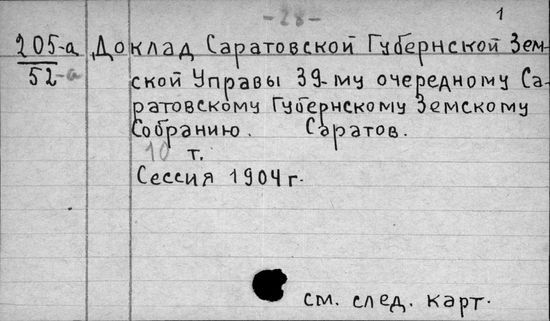 -28- 1
205-а Доклад Саратовской Губернской Зем-
52-а ской Управы 39-му очередному Са-
ратовскому Губернскому Земскому
Собранию. Саратов.
10 т.
Сессия 1904 г.
см. след. карт.